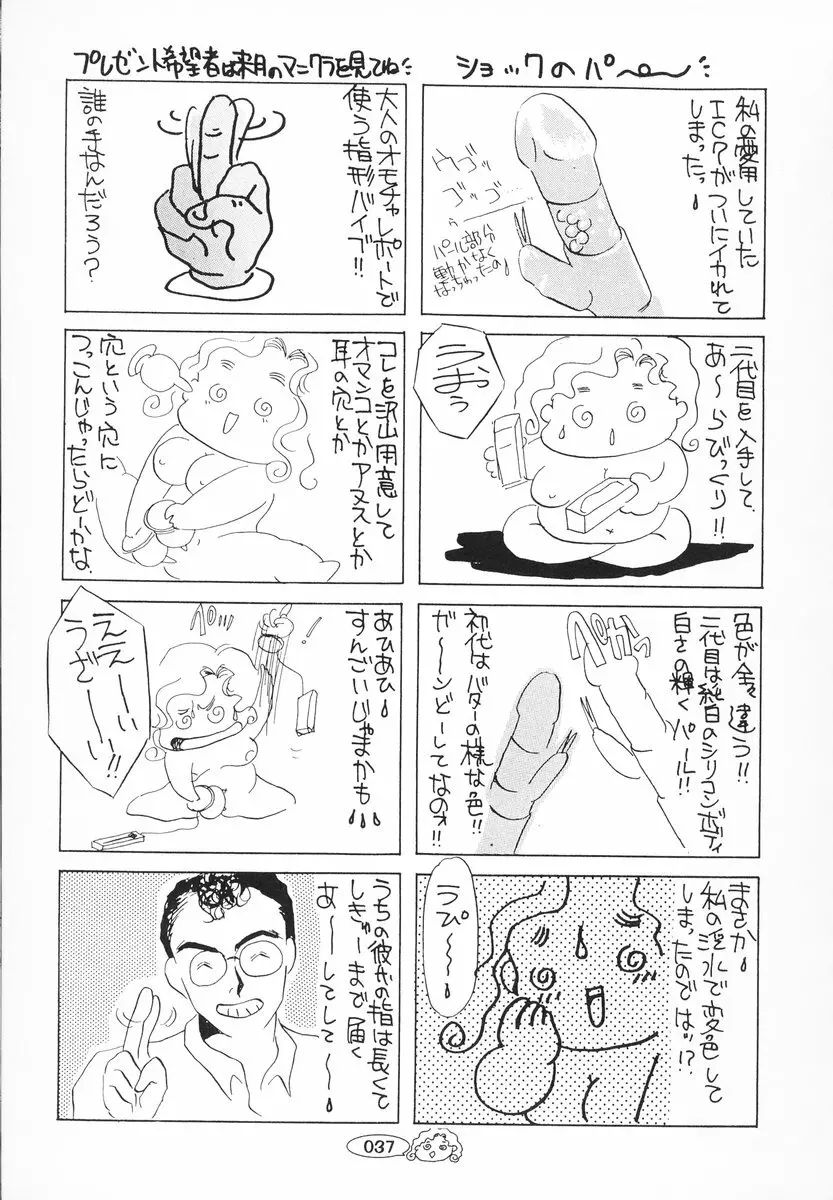 ショックのパ〜
私の愛用していた
ICPがついにイカれて
しまったっ
ウゴッ
ゴッゴ
パール部分
動かなく
なっちゃったの
二代目を入手して、
あ〜らびっくり!!
うおぅ
色が全々違う!!
二代目は純白のシリコンボディ
白さの輝くパール!!
初代はバターの様な色!!
が〜〜ンどーしてなのォ!!
ペかっ
まさか
私の淫水で変色して
しまったのでは!?
うぴ〜〜
プレゼント希望者は来月のマニクラを見てね
大人のオモチャレポートで
使う指形バイブ!!
誰の手なんだろう?
コレを沢山用意して
オマンコとかアヌスとか
耳の穴とか
穴という穴に
つっこんじゃったらどーかな
あひあひ
すんごいじゃまかも
ええーい
うざーーい!!
うちの彼がの指は長くて
しきゅーまで届く
あ〜してして〜
037